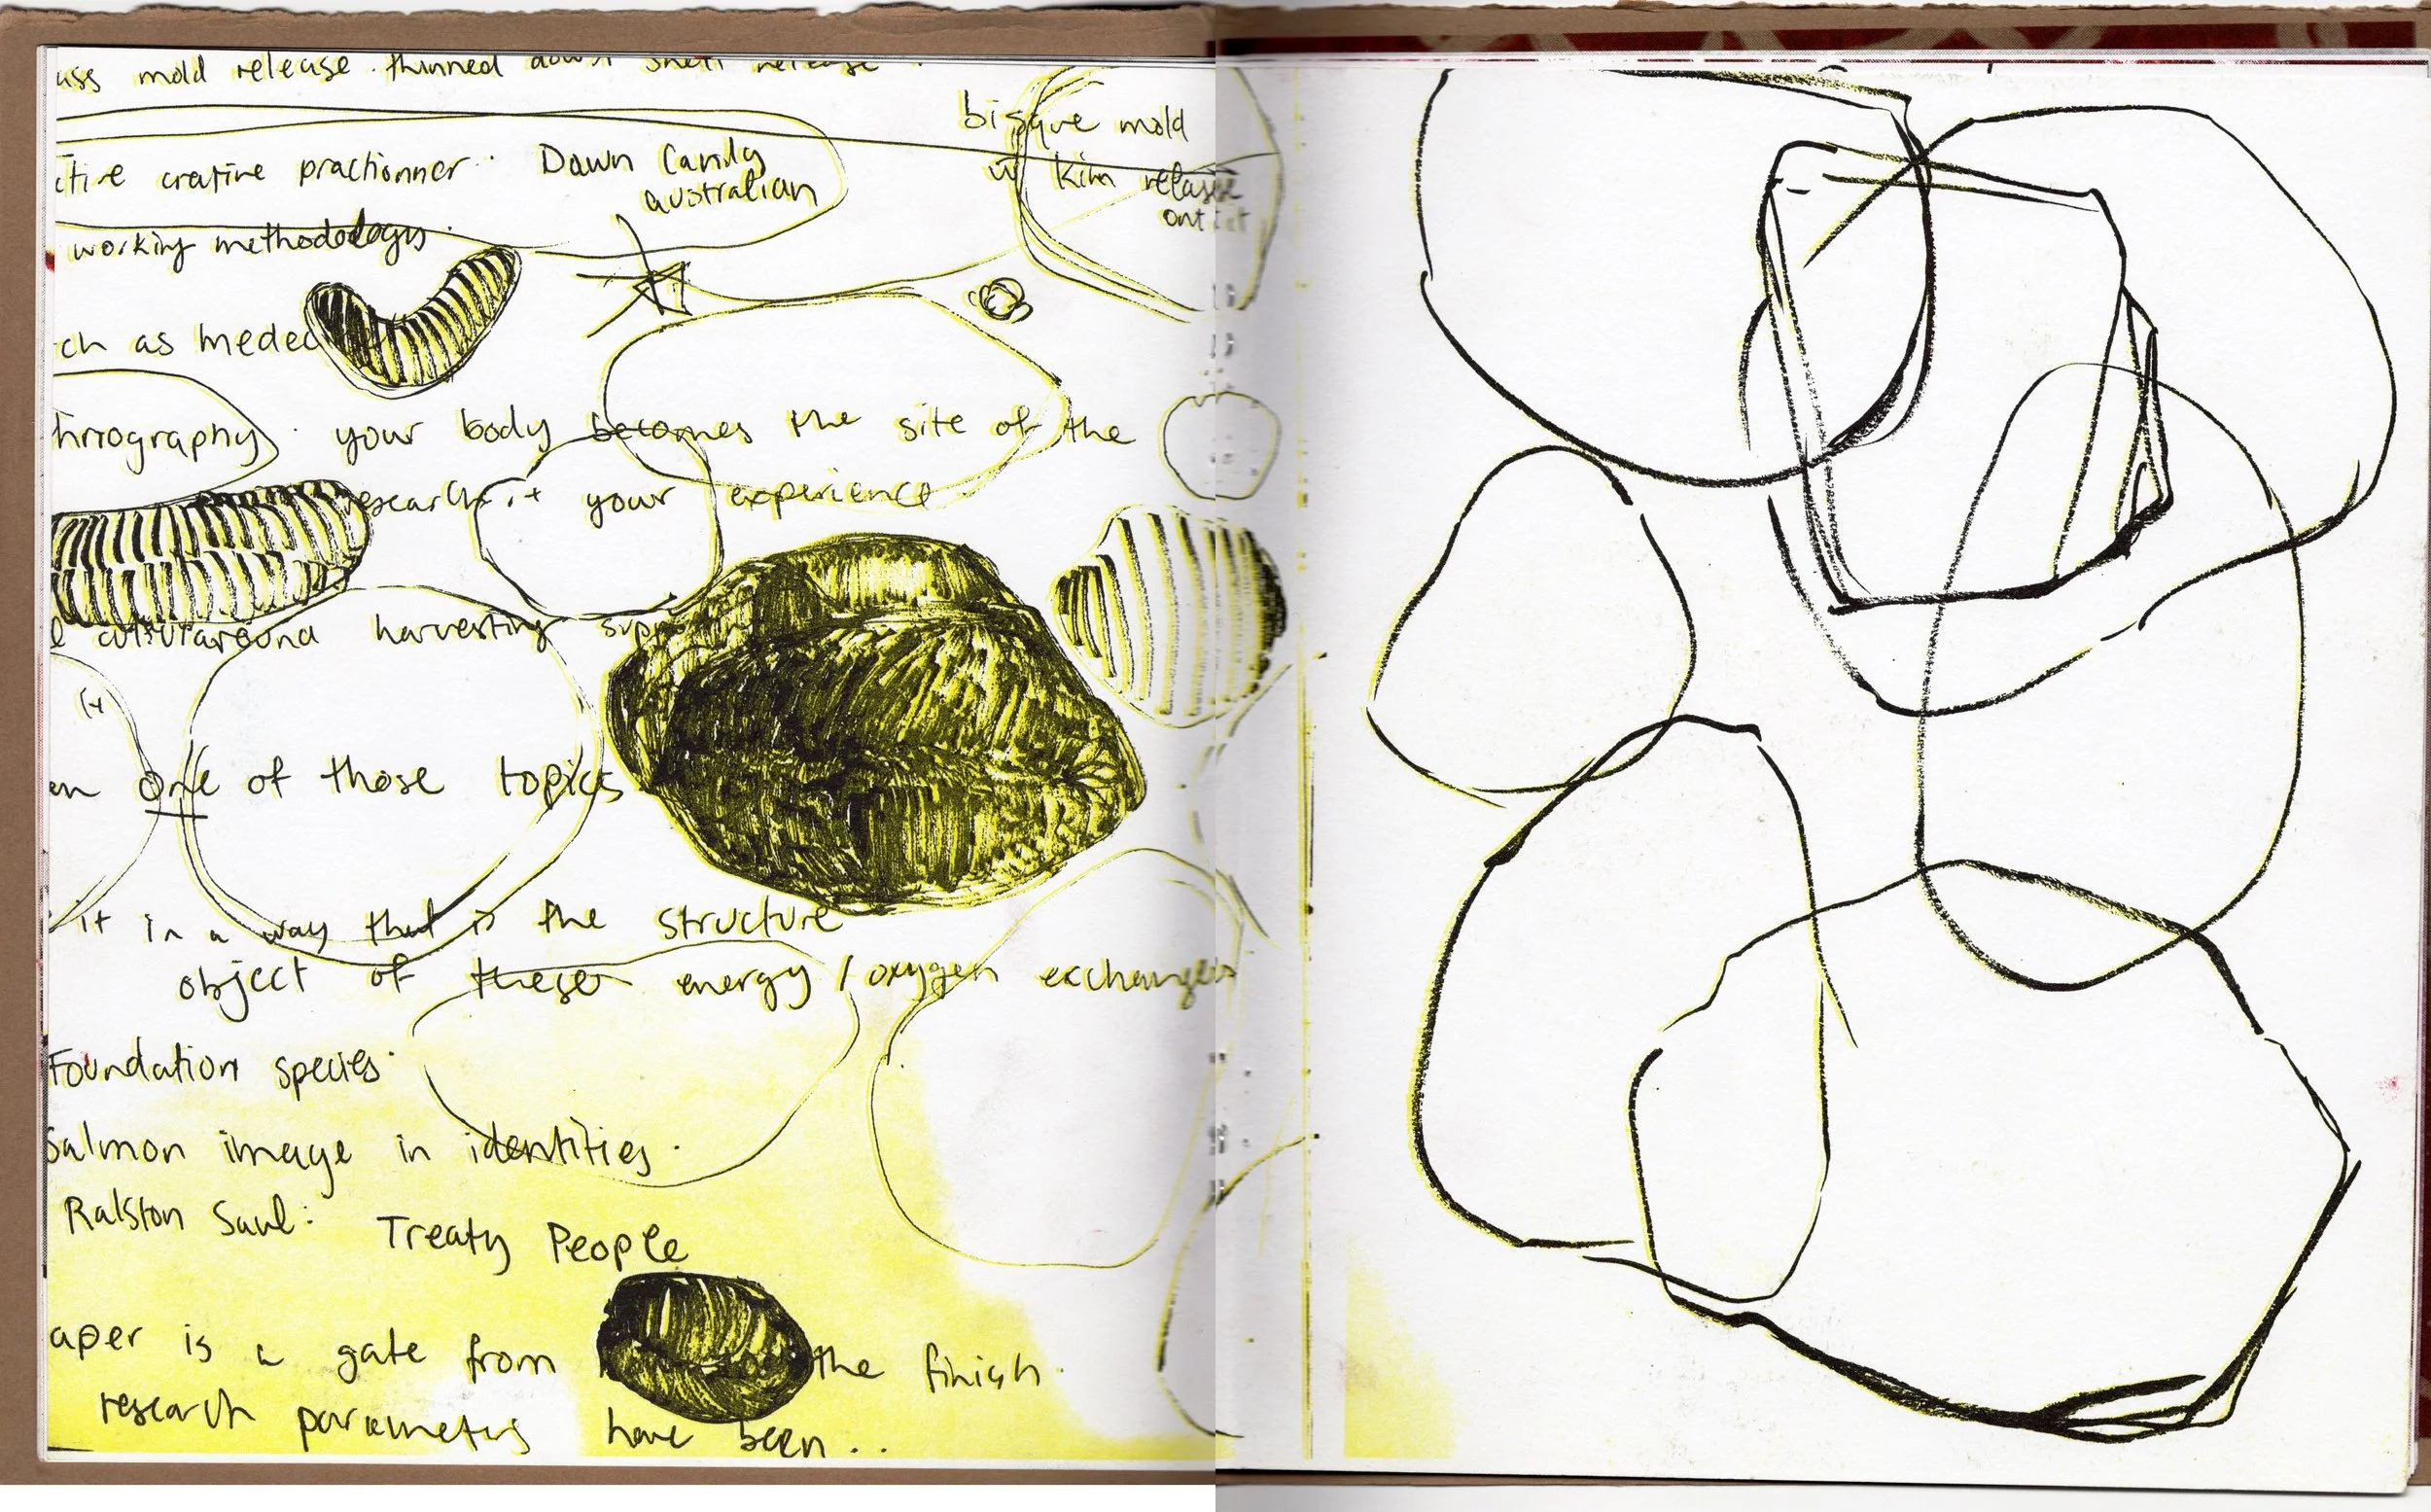 mold release. thinned down shell release.
bisque mold
w kiln release
creative practionner. Dawn
australian
working methodology.
ch as
hnography. your body becomes the site of the
research. it your experience
around harvesting
one of those topics
it in a way that is the structure
object of these energy / oxygen exchanges
Foundation species.
Salmon image in identities.
Ralston Saul: Treaty People
aper is a gate from the finish.
research parameters have been..